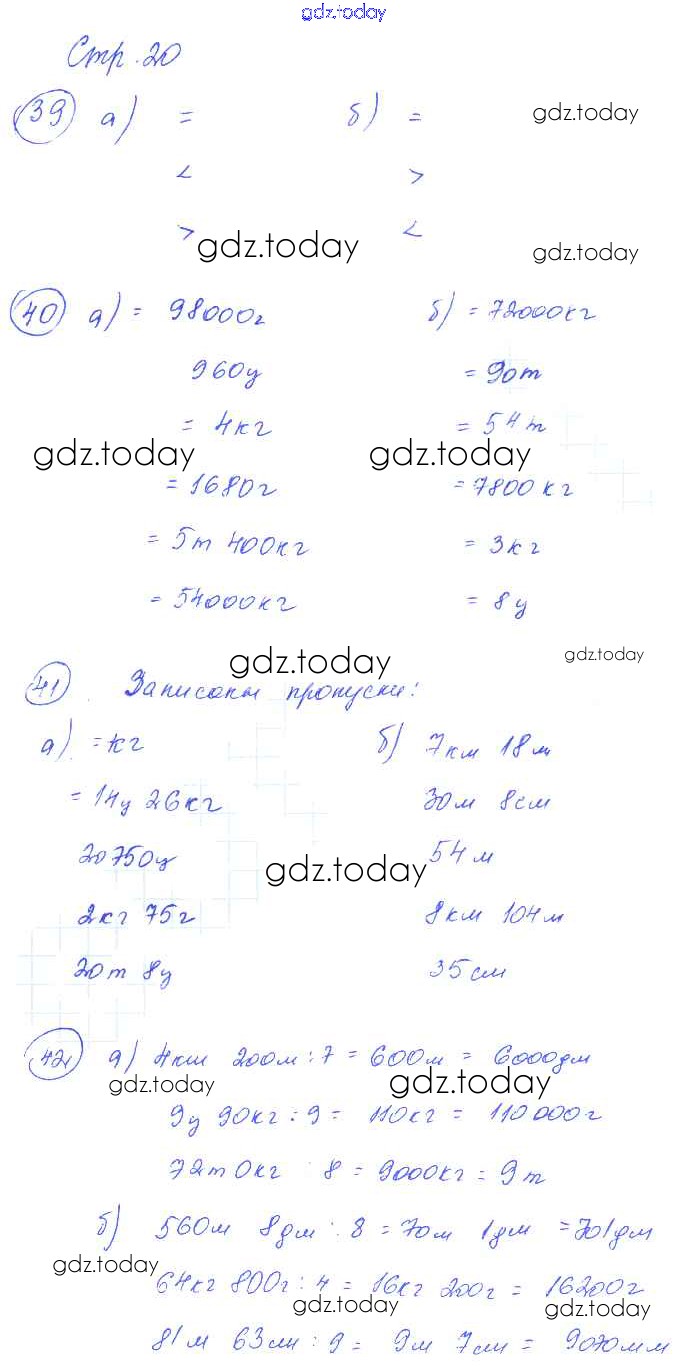 gdz.today
Стр. 20
39 а) = б) = gdz.today
< >
> gdz.today < gdz.today
40 а) = 98000г б) = 72000кг
960ц = 90т
= 4кг = 54т
gdz.today gdz.today
= 1680г = 7800кг
= 5т 400кг = 3кг
= 54000кг = 8ц
gdz.today gdz.today
41. Записаны пропуски:
а) = кг б) 7км 18м
= 14ц 26кг 30м 8см
20750ц 54м
gdz.today
2кг 75г 8км 104м
20т 8ц 35см
42 а) 4км 200м : 7 = 600м = 6000дм
gdz.today gdz.today
9ц 90кг : 9 = 110кг = 110000г
72т 0кг : 8 = 9000кг = 9т
б) 560м 8дм : 8 = 70м 1дм = 701дм
gdz.today
64кг 800г : 4 = 16кг 200г = 16200г
gdz.today gdz.today
81м 63см : 9 = 9м 7см = 9070мм